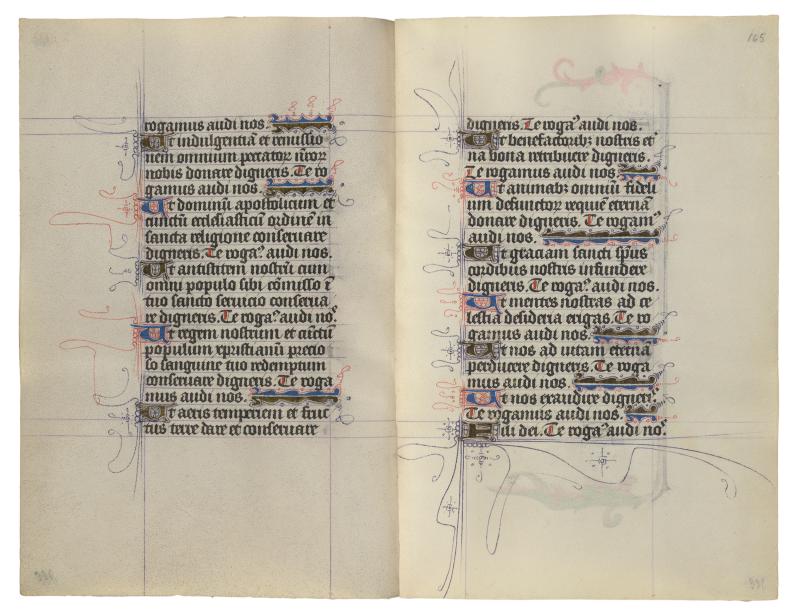 rogamus audi nos.
Ut indulgentiā et remissio
nem omnium peccatoꝝ nr̄oꝝ
nobis donare digneris. Te ro
gamus audi nos.
Ut dominū apostolicum et
cunctū ecclesiasticū ordinē in
sancta religione conseruare
digneris. Te rogaꝰ audi nos.
Ut antistitem nostrū cum
omni populo sibi cōmisso ī
tuo sancto seruicio conserua
re digneris. Te rogaꝰ audi noˢ.
Ut regem nostrum et cūctū
populum xpristianū precio
so sanguine tuo redemptum
conseruare digneris. Te roga
mus audi nos.
Ut aeris temperiem et fruc
tus terre dare et conseruare
165
digneris. Te rogaꝰ audi nos.
Ut benefactoribꝫ nostris et
na bona retribuere digneris.
Te rogamus audi nos.
Ut animabꝫ omniū fideli
um defunctoꝝ requiē eternā
donare digneris. Te rogamꝰ
audi nos.
Ut graciam sancti sp̄us
cordibus nostris infundere
digneris. Te rogaꝰ audi nos.
Ut mentes nostras ad ce
lestia desideria erigas. Te ro
gamus audi nos.
Ut nos ad uitam eternā
perducere digneris. Te roga
mus audi nos.
Ut nos exaudire digneriˢ.
Te rogamus audi nos.
Fili dei. Te rogaꝰ audi noˢ.